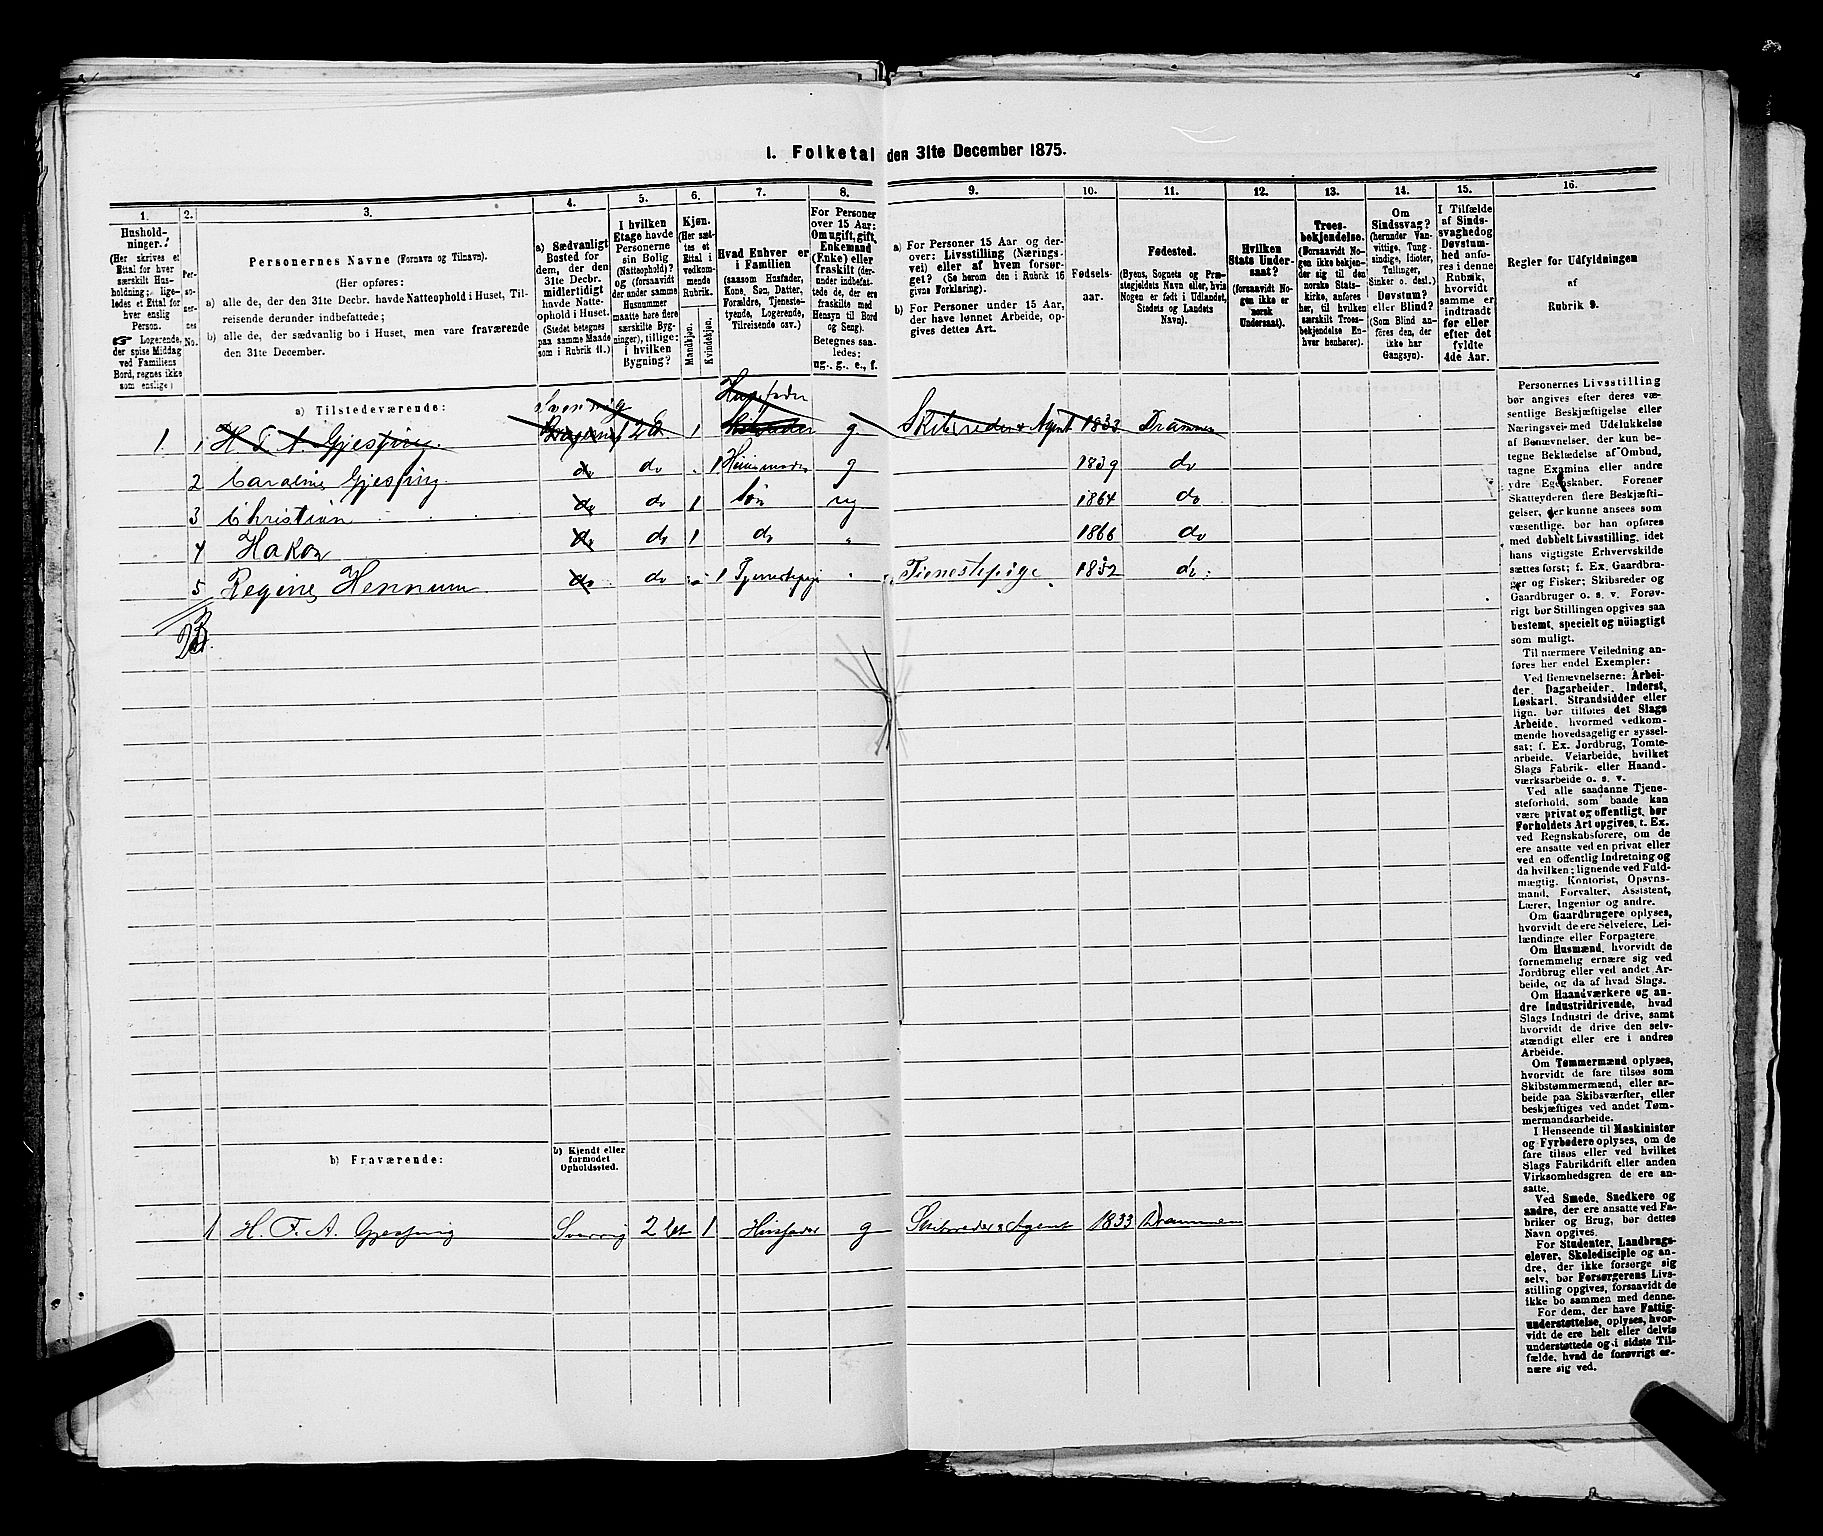 1. Folketal den 31te December 1875.
1.
Hushold-
ninger.
(Her skrives et
Ettal for hver
særskilt Hus-
holdning; lige-
ledes et Ettal for
hver enslig
Person.
☞ Logerende,
der spise Middag
ved Familiens
Bord, regnes ikke
som enslige)
2.
Per-
so-
ner-
nes
No.
3.
Personernes Navne (Fornavn og Tilnavn).
(Her opføres:
a) alle de, der den 31te Decbr. havde Natteophold i Huset, Til-
reisende derunder indbefattede;
b) alle de, der sædvanlig bo i Huset, men vare fraværende
den 31te December.
4.
a) Sædvanligt
Bosted for
dem, der den
31te Decbr.
midlertidigt
havde Natte-
ophold i Huset.
(Stedet betegnes
paa samme Maade
som i Rubrik 11.)
5.
I hvilken
Etage havde
Personerne
sin Bolig
(Natteophold)?
og (forsaavidt
der under samme
Husnummer
maatte høre flere
særskilte Byg-
ninger), tillige:
i hvilken
Bygning?
6.
Kjøn.
(Her sæt-
tes et
Ettal i
vedkom-
mende
Rubrik.
Mandkjøn.
Kvindekjøn.
7.
Hvad Enhver er
i Familien
(saasom Husfader,
Kone, Søn, Datter,
Forældre, Tjeneste-
tyende, Logerende,
Tilreisende osv.)
8.
For Personer
over 15 Aar:
Om ugift, gift,
Enkemand
(Enke) eller
fraskilt (der-
under indbefat-
tede de, der ere
fraskilte med
Hensyn til Bord
og Seng).
Betegnes saa-
ledes:
ug., g., e., f.
9.
a) For Personer 15 Aar og der-
over: Livsstilling (Nærings-
vei) eller af hvem forsør-
get? (Se herom den i Rubrik 16
givne Forklaring).
b) For Personer under 15 Aar,
der have lønnet Arbeide, op-
gives dettes Art.
10.
Fødsels-
aar.
11.
Fødested.
(Byens, Sognets og Præ-
stegjeldets Navn eller, hvis
Nogen er født i Udlandet,
Stedets og Landets
Navn).
12.
Hvilken
Stats Under-
saat?
(forsaavidt No-
gen ikke er
norsk
Undersaat).
13.
Troes-
bekjendelse.
(Forsaavidt No-
gen ikke bekjen-
der sig til den
norske Stats-
kirke, anføres
her, til hvilken
særskilt Troes-
bekjendelse En-
hver henhører).
14.
Om
Sindssvag?
(herunder Van-
vittige, Tung-
sindige, Idioter,
Tullinger,
Sinker o. desl.)
Døvstum?
eller Blind?
(Som Blind an-
føres den, der
ikke har
Gangsyn).
15.
I Tilfælde
af Sinds-
svaghed og
Døvstum-
hed anfø-
res i denne
Rubrik,
hvorvidt
samme er
indtraadt
før eller
efter det
fyldte
4de Aar.
16.
Regler for Udfyldningen
af
Rubrik 9.
a) Tilstedeværende:
Sverrig
Husfader
1. 1 H. F. A. Gjessing Bragernes 2 E 1 g. Skibsreder & Agent 1833 Drammen
2 Caroline Gjessing do do 1 Husmoder g 1839 do
3 Christian do do 1 Søn ug 1864 do
4 Hakon do do 1 do " 1866 do
5 Regine Hennum do do 1 Tjenestepige " Tienestepige 1852 do
b) Fraværende:
b) Kjendt eller
formodet
Opholdssted.
1 H. F. A. Gjessing Sverrig 2 Et 1 Husfader g Skibsreder & Agent 1833 Drammen
Personernes Livsstilling
bør angives efter deres væ-
sentlige Beskjæftigelse eller
Næringsvei med Udelukkelse
af Benævnelser, der kun be-
tegne Beklædelse af Ombud,
tagne Examina eller andre
ydre Egenskaber. Forener
Skatteyderen flere Beskjæfti-
gelser, der kunne ansees som
væsentlige, bør han opføres
med dobbelt Livsstilling, idet
hans vigtigste Erhvervskilde
sættes først; f. Ex. Gaardbru-
ger og Fisker; Skibsreder og
Gaardbruger o. s. v. Forøv-
rigt bør Stillingen opgives saa
bestemt, specielt og nøiagtigt
som muligt.
Til nærmere Veiledning an-
føres her endel Exempler:
Ved Benævnelserne: Arbei-
der, Dagarbeider, Inderst,
Løskarl, Strandsidder eller
lign. bør tilføies det Slags
Arbeide, hvormed vedkom-
mende hovedsagelig er syssel-
sat; f. Ex. Jordbrug, Tomte-
arbeide, Veiarbeide, hvilket
Slags Fabrik- eller Haand-
værksarbeide o. s. v.
Ved alle saadanne Tjene-
steforhold, som baade kan
være privat og offentligt, bør
Forholdets Art opgives, f. Ex.
ved Regnskabsførere, om de
ere ansatte ved en privat eller
ved en offentlig Indretning og
da hvilken; lignende ved Fuld-
mægtig, Kontorist, Opsyns-
mand, Forvalter, Assistent,
Lærer, Ingeniør og andre.
Om Gaardbrugere oplyses,
hvorvidt de ere Selveiere, Lei-
lændinge eller Forpagtere
Om Husmænd, hvorvidt de
fornemmelig ernære sig ved
Jordbrug eller ved andet Ar-
beide, og da af hvad Slags.
Om Haandværkere og an-
dre Industridrivende, hvad
Slags Industri de drive, samt
hvorvidt de drive den selv-
stændigt eller ere i andres
Arbeide.
Om Tømmermænd oplyses,
hvorvidt de fare tilsøs som
Skibstømmermænd, eller ar-
beide paa Skibsværfter, eller
beskjæftiges ved andet Tøm-
mermandsarbeide.
I Henseende til Maskinister
og Fyrbødere oplyses, om de
fare tilsøs eller ved hvilket
Slags Fabrikdrift eller anden
Virksomhedsgren de ere an-
satte.
Ved Smede, Snedkere og
andre, der ere ansatte ved Fa-
briker og Brug, bør dettes
Navn opgives.
For Studenter, Landbrugs-
elever, Skoledisciple og an-
dre, der ikke forsørge sig
selv, bør Forsørgerens Livs-
stilling opgives, forsaavidt de
ikke bo sammen med denne.
For dem, der have Fattig-
understøttelse, oplyses, hvor-
vidt de ere helt eller delvis
understøttede og i sidste Til-
fælde, hvad de forøvrigt er-
nære sig ved.